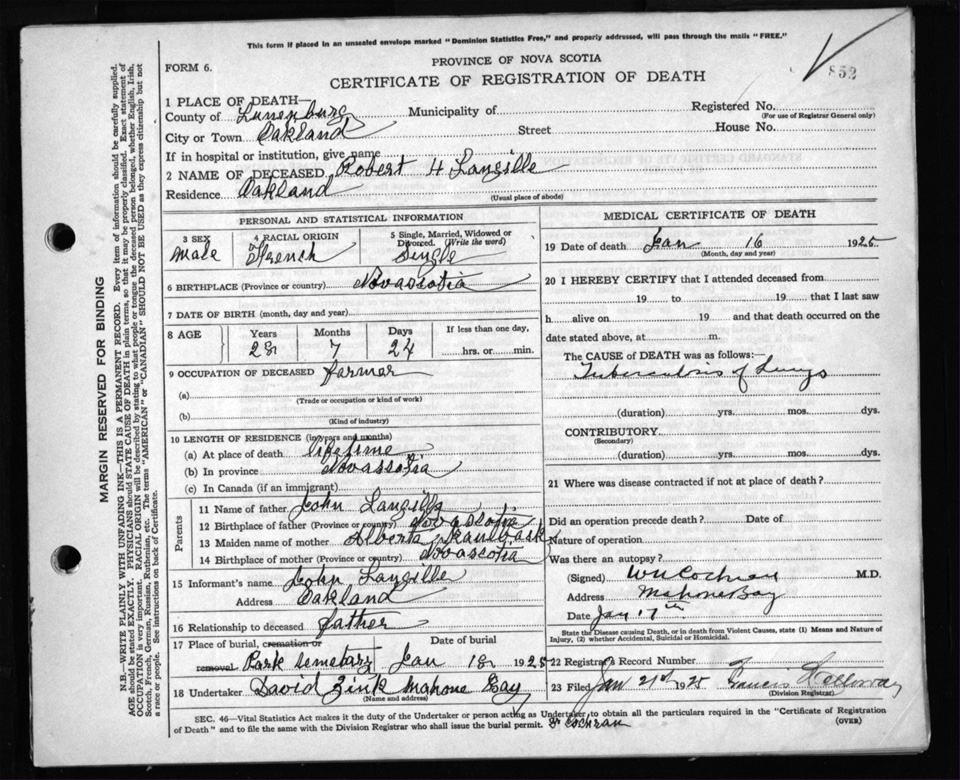 This form if placed in an unsealed envelope marked "Dominion Statistics Free," and properly addressed, will pass through the mails "FREE."
852
FORM 6.
PROVINCE OF NOVA SCOTIA
CERTIFICATE OF REGISTRATION OF DEATH
1 PLACE OF DEATH—
County of Lunenburg Municipality of Registered No.
(For use of Registrar General only)
City or Town Oakland Street House No.
If in hospital or institution, give name
2 NAME OF DECEASED Robert H Langille
Residence Oakland
(Usual place of abode)
PERSONAL AND STATISTICAL INFORMATION
3 SEX
Male
4 RACIAL ORIGIN
French
5 Single, Married, Widowed or Divorced. (Write the word)
Single
6 BIRTHPLACE (Province or country) Novascotia
7 DATE OF BIRTH (month, day and year)
8 AGE Years Months Days If less than one day,
28 7 24 hrs. or min.
9 OCCUPATION OF DECEASED farmar
(a)
(Trade or occupation or kind of work)
(b)
(Kind of industry)
10 LENGTH OF RESIDENCE (in years and months)
(a) At place of death lifetime
(b) In province Novascotia
(c) In Canada (if an immigrant)
Parents
11 Name of father John Langille
12 Birthplace of father (Province or country) Novascotia
13 Maiden name of mother Alberta
14 Birthplace of mother (Province or country) Novascotia
15 Informant's name John Langille
Address Oakland
16 Relationship to deceased father
17 Place of burial, cremation or removal Park Semetary Date of burial Jan 18 1925
18 Undertaker David Zink Mahone Bay
(Name and address)
MEDICAL CERTIFICATE OF DEATH
19 Date of death Jan 16 1925
(Month, day and year)
20 I HEREBY CERTIFY that I attended deceased from
19 to 19 that I last saw
h alive on 19 and that death occurred on
date stated above, at m.
The CAUSE OF DEATH was as follows:
Tuberculosis of Lungs
(duration) yrs. mos. dys.
CONTRIBUTORY
(Secondary)
(duration) yrs. mos. dys.
21 Where was disease contracted if not at place of death?
Did an operation precede death? Date of
Nature of operation
Was there an autopsy?
(Signed) Wm Cochran M.D.
Address Mahone Bay
Date Jan 17th
State the Disease causing Death, or in death from Violent Causes, state (1) Means and Nature of Injury, (2) whether Accidental, Suicidal or Homicidal.
22 Registrar's Record Number
23 Filed Jan 21st 1925 Francis Holloway
(Division Registrar)
SEC. 46—Vital Statistics Act makes it the duty of the Undertaker or person acting as Undertaker to obtain all the particulars required in the "Certificate of Registration
of Death" and to file the same with the Division Registrar who shall issue the burial permit. Dr Cochran
(OVER)
MARGIN RESERVED FOR BINDING
N.B.—WRITE PLAINLY WITH UNFADING INK—THIS IS A PERMANENT RECORD. Every item of information should be carefully supplied.
AGE should be stated EXACTLY. PHYSICIANS should STATE CAUSE OF DEATH in plain terms, so that it may be properly classified. Exact statement of
OCCUPATION is very important. RACIAL ORIGIN will be described by stating to what people or tongue the deceased person belonged, whether English, Irish,
Scotch, French, German, Russian, Ruthenian, etc. The terms "AMERICAN" or "CANADIAN" SHOULD NOT BE USED as they express citizenship but not
a race or people. See instructions on back of Certificate.